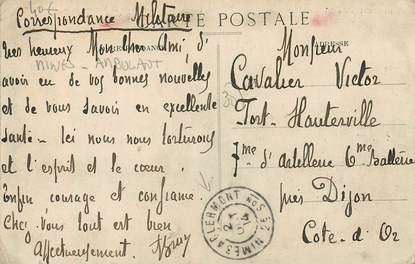 Correspondance Militaire
CARTE POSTALE
Très heureux Mon cher Ami, d'
avoir eu de vos bonnes nouvelles
et de vous savoir en excellente
santé – Ici nous nous torturons
et l'esprit et le cœur.
Enfin courage et confiance.
Chez vous tout est bien
Affectueusement.
Monsieur
ADRESSE
Cavalier Victor
Fort-Hauterville
7me d'artillerie 6me Battérie
près Dijon
Cote-d'Or
NIMES A CLERMONT